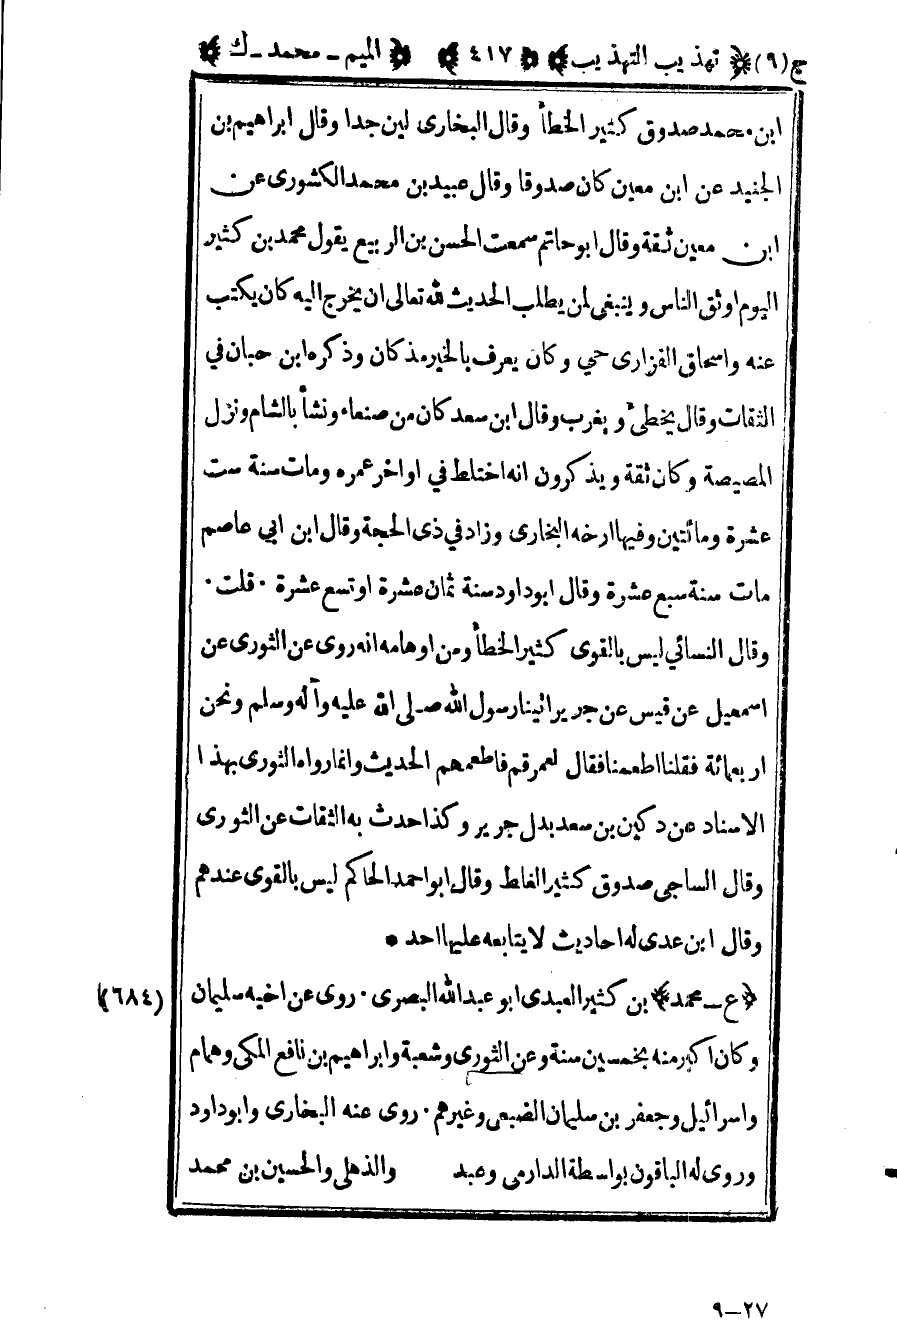 ج(٩) ﴿ تهذيب التهذيب ﴾ ﴿ ٤١٧ ﴾ ﴿ الميم - محمد - ك ﴾
ابن محمد صدوق كثير الخطأ وقال البخارى لين جدا وقال ابراهيم بن
الجنيد عن ابن معين كان صدوقا وقال عبيد بن محمد الكشورى عن
ابن معين ثقة وقال ابو حاتم سمعت الحسن بن الربيع يقول محمد بن كثير
اليوم اوثق الناس و ينبغى لمن يطلب الحديث لله تعالى ان يخرج اليه كان يكتب
عنه واسحاق الفزارى حي و كان يعرف بالخير مذ كان وذكره ابن حبان في
الثقات وقال يخطئ و يغرب وقال ابن سعد كان من صنعاء ونشأ بالشام ونزل
المصيصة وكان ثقة ويذكرون انه اختلط في اواخر عمره ومات سنة ست
عشرة ومائتين وفيها ارخه البخارى وزاد في ذى الحجة وقال ابن ابي عاصم
مات سنة سبع عشرة وقال ابو داود سنة ثمان عشرة او تسع عشرة · قلت ·
وقال النسائي ليس بالقوى كثير الخطأ ومن اوهامه انه روى عن الثورى عن
اسمعيل عن قيس عن جرير اتينا رسول الله صلى الله عليه وآله وسلم ونحن
اربعمائة فقلنا اطعمنا فقال لعمر قم فاطعمهم الحديث وانما رواه الثورى بهذا
الاسناد عن دكين بن سعد بدل جرير وكذا حدث به الثقات عن الثورى
وقال الساجى صدوق كثير الغلط وقال ابو احمد الحاكم ليس بالقوى عندهم
وقال ابن عدى له احاديث لا يتابعه عليها احد *
﴿ ع - محمد ﴾ بن كثير العبدى ابو عبد الله البصرى · روى عن اخيه سليمان (٦٨٤)
وكان اكبر منه بخمسين سنة وعن الثورى وشعبة وابراهيم بن نافع المكى وهمام
واسرائيل وجعفر بن سليمان الضبعى وغيرهم · روى عنه البخارى وابو داود
وروى له الباقون بواسطة الدارمى وعبد والذهلى والحسين بن محمد
٩-٢٧